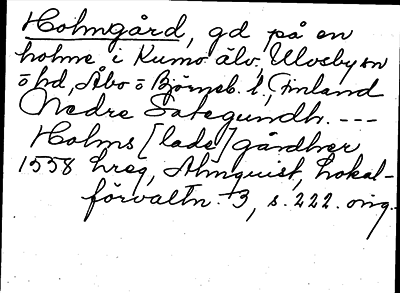 Holmgård, gd på en
holme i Kumo älv, Ulvsby sn
ö hd, Åbo o Björneb. l., Finland
Nedre Satagundh. ---
Holms [lade] gårdher
1558 hreg, Almquist, Lokal-
förvaltn. 3, s. 222. orig.